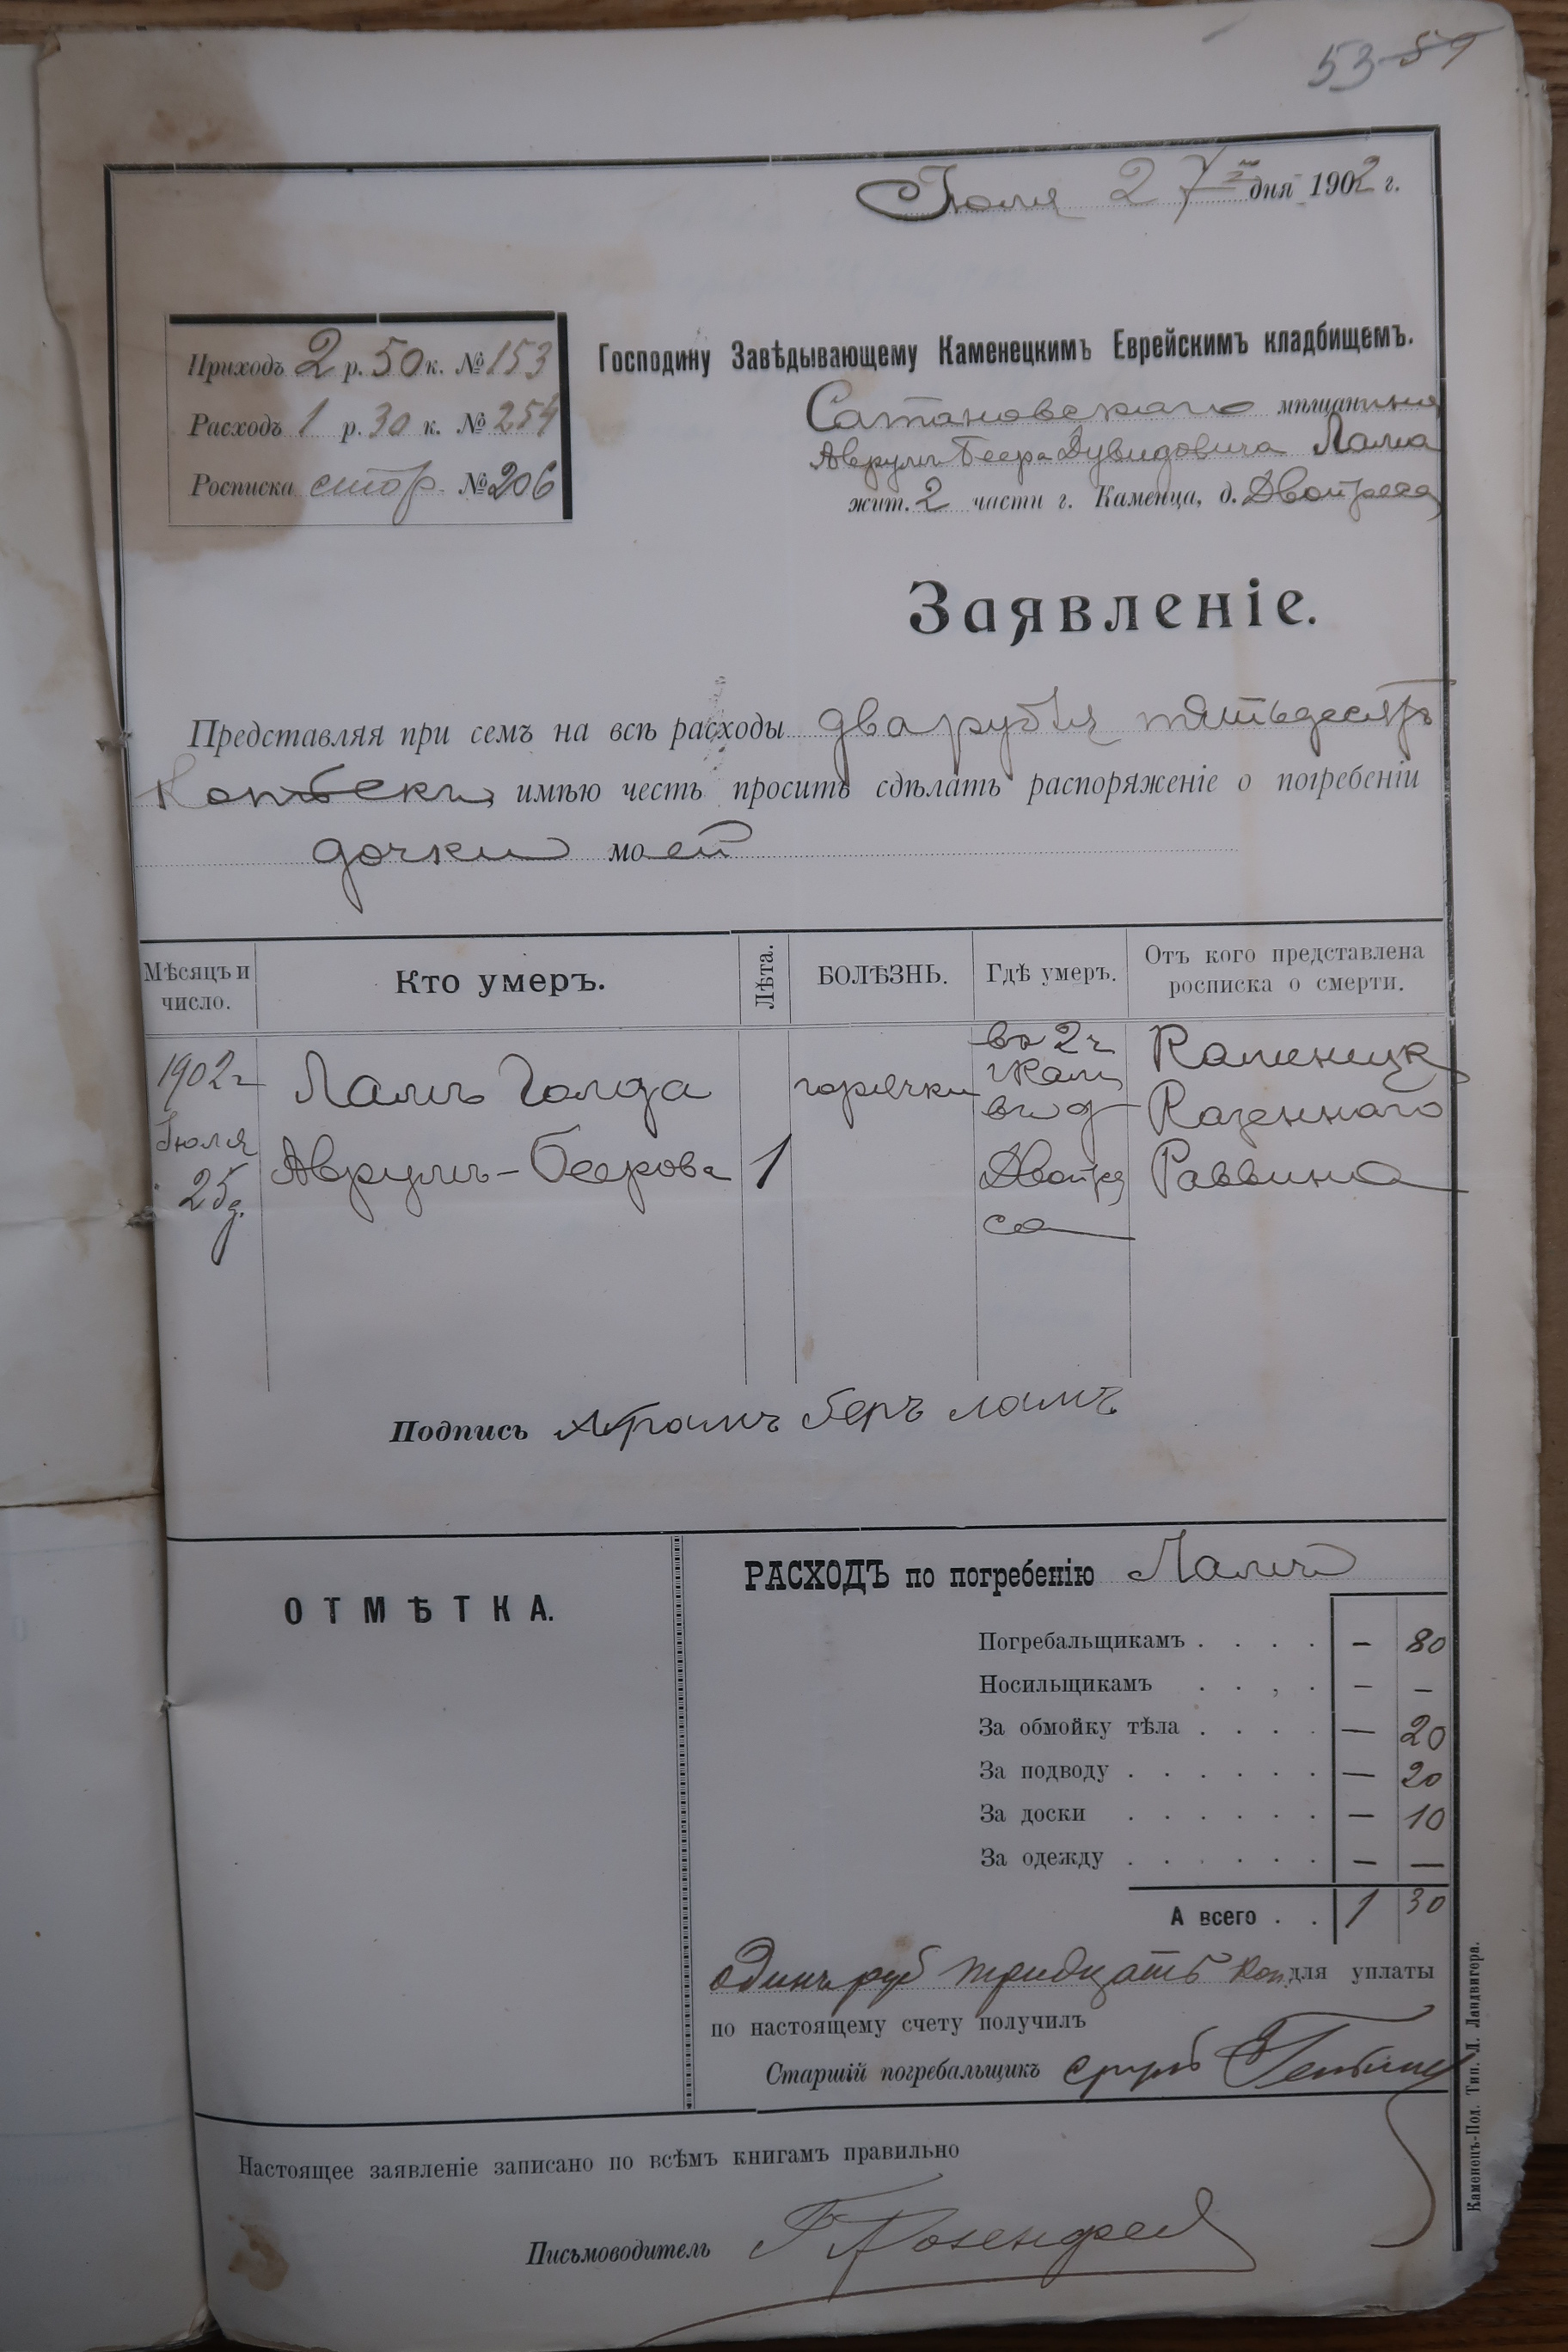 53 57
Іюля 27 дня 1902 г.
Приходъ 2 р. 50 к. № 153
Расходъ 1 р. 30 к. № 254
Росписка стор. № 206
Господину Завѣдывающему Каменецкимъ Еврейскимъ кладбищемъ.
Сатановскаго мѣщанина
Аврумъ Беера Дувидовича Лама
жит. 2 части г. Каменца, д.
Заявленіе.
Представляя при семъ на всѣ расходы два рубля пятьдесятъ
копѣекъ, имѣю честь просить сдѣлать распоряженіе о погребеніи
дочки моей
Мѣсяцъ и число. Кто умеръ. Лѣта. БОЛѢЗНЬ. Гдѣ умеръ. Отъ кого представлена росписка о смерти.
1902 г Ламъ Голда горячки въ 2 ч г Кам Каменецк
Іюля Аврумъ-Беерова 1 въ д Казеннаго
25 д. Раввина
Подпись Абрамъ беръ ламъ
ОТМѢТКА.
РАСХОДЪ по погребенію Ламъ
Погребальщикамъ . . . . — 80
Носильщикамъ . . , . — —
За обмойку тѣла . . . . — 20
За подводу . . . . . . — 20
За доски . . . . . . — 10
За одежду . . . . . . — —
А всего . . 1 30
одинъ руб тридцать коп для уплаты
по настоящему счету получилъ
Старшій погребальщикъ
Настоящее заявленіе записано по всѣмъ книгамъ правильно
Письмоводитель
Каменецъ-Под. Тип. Л. Ландвигера.